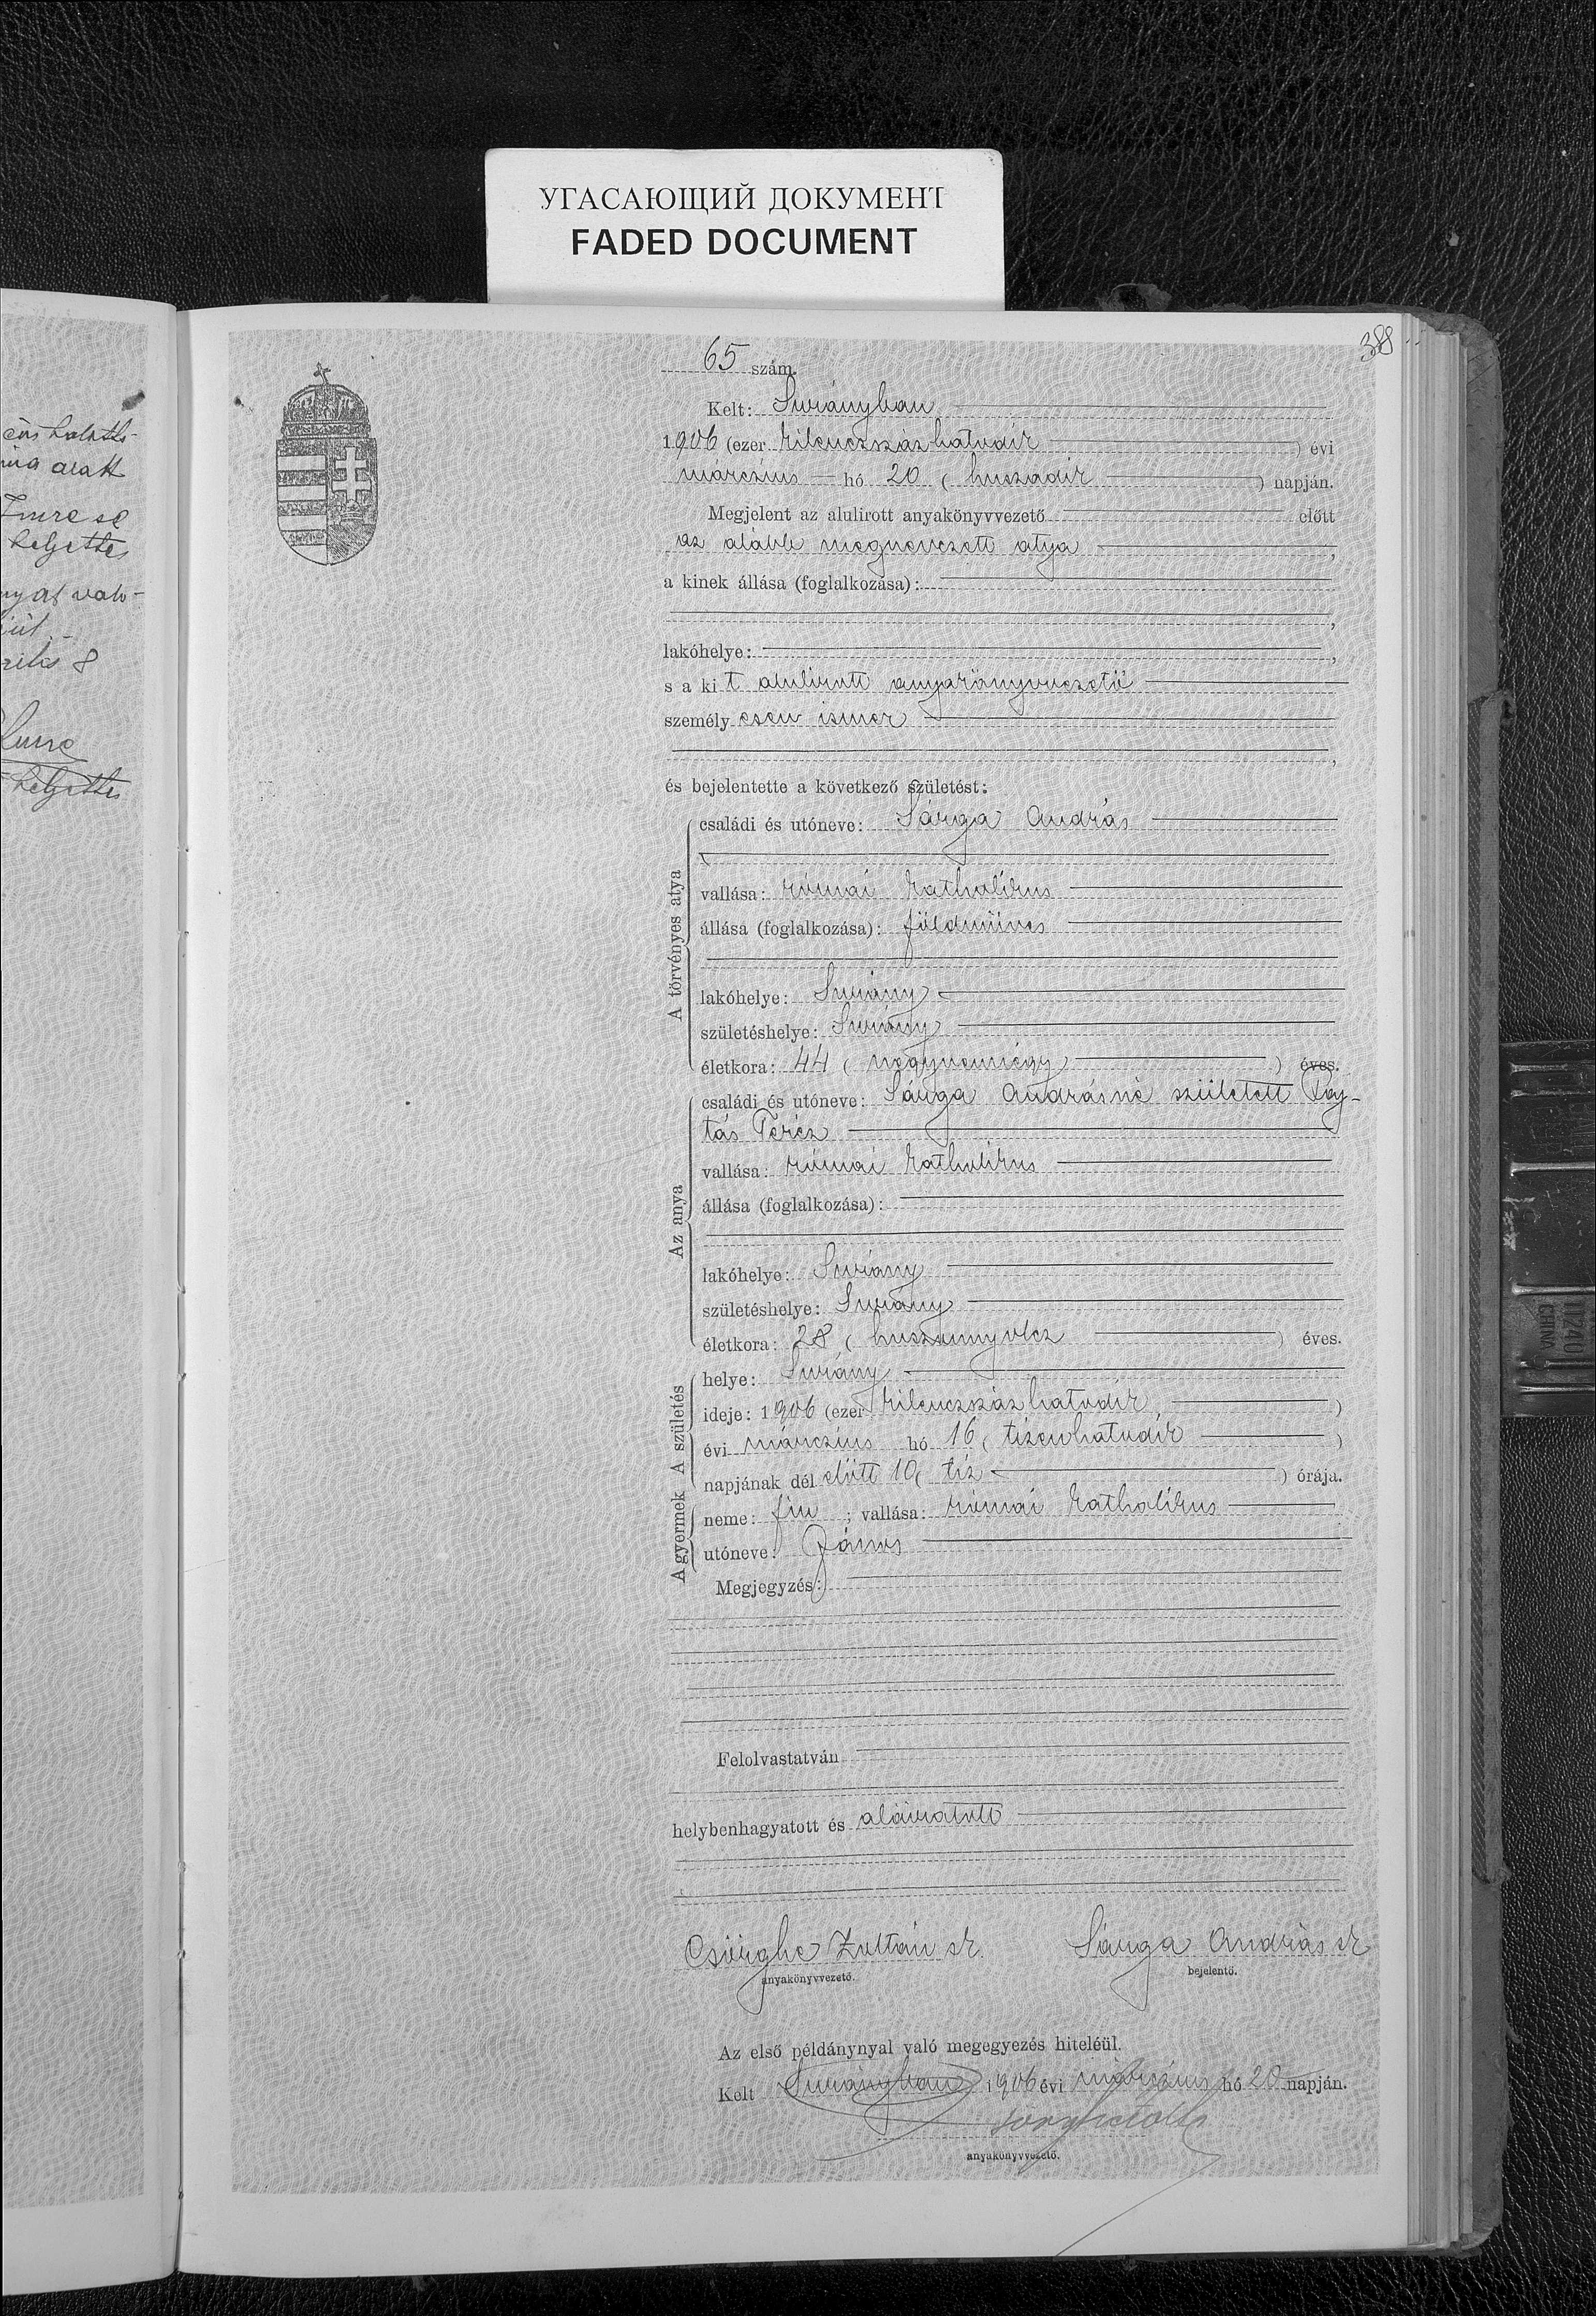 УГАСАЮЩИЙ ДОКУМЕНТ
FADED DOCUMENT
alatt
Imre se
helyettes
8
Imre
helyettes
388
65 szám.
Kelt: Surányban
1906 (ezer kilenczszázhatodik) évi
márczius hó 20 (huszadik) napján.
Megjelent az alulirott anyakönyvvezető előtt
az alább megnevezett atya,
a kinek állása (foglalkozása):
,
lakóhelye: ,
s a kit alulirott anyakönyvvezető
személyesen ismer
,
és bejelentette a következő születést:
A törvényes atya
családi és utóneve: Sárga András
vallása: római katholikus
állása (foglalkozása): földmüves
lakóhelye: Surány
születéshelye: Surány
életkora: 44 (negyvennégy) éves.
Az anya
családi és utóneve: Sárga Andrásné született Paj-
tás Teréz
vallása: római katholikus
állása (foglalkozása):
lakóhelye: Surány
születéshelye: Surány
életkora: 28 (huszonnyolcz) éves.
A születés
helye: Surány
ideje: 1906 (ezer kilenczszázhatodik)
évi márczius hó 16 (tizenhatodik)
napjának dél előtt 10 (tíz) órája.
A gyermek
neme: fiu; vallása: római katholikus
utóneve: János
Megjegyzés:
Felolvastatván
helybenhagyatott és aláiratott
Csörghe Zoltán sk. Sárga András sk
anyakönyvvezető. bejelentő.
Az első példánynyal való megegyezés hiteléül.
Kelt Surányban 1906 évi márczius hó 20 napján.
anyakönyvvezető.